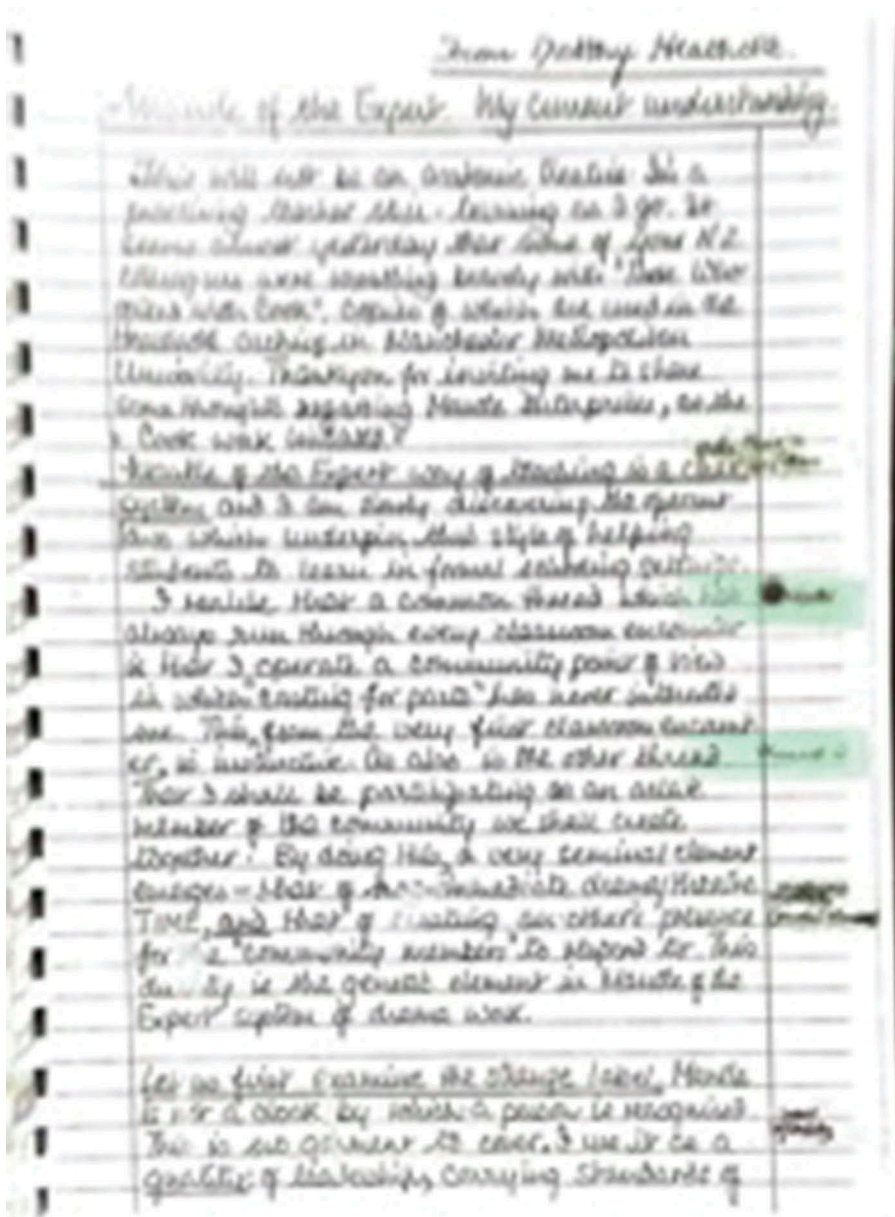 From Dorothy Heathcote.
Mantle of the Expert. My current understanding.
This will not be an academic treatise. I'm a
practising teacher still - learning as I go. It
seems almost yesterday that some of your N.Z.
colleagues were wrestling bravely with "Those Who
with Cook". Copies of which are used in the
archive in Manchester Metropolitan
University. Thankyou for inviting me to share
some thoughts regarding Mantle Enterprises, as the
Cook work
Mantle of the Expert way of teaching is a
system and I am slowly discovering the operant
laws which underpin this style of helping
students to learn in formal schooling settings.
I realise that a common thread which has
always run through every classroom encounter
is that I operate a community point of view
in which "casting for parts" has never interested
me. This, from the very first classroom encount
er, is instinctive. As also is the other thread
That I shall be participating as an active
member of the community we shall create
together. By doing this, a very seminal element
emerges - that of immediate drama/theatre
TIME, and that of creating an other's presence
for "community members" to respond to. This
is the genetic element in Mantle of the
Expert system of drama work.
Let us first examine the strange label, Mantle
is not a cloak by which a person is recognised
This is no garment to cover. I use it as a
quality of leadership, carrying standards of